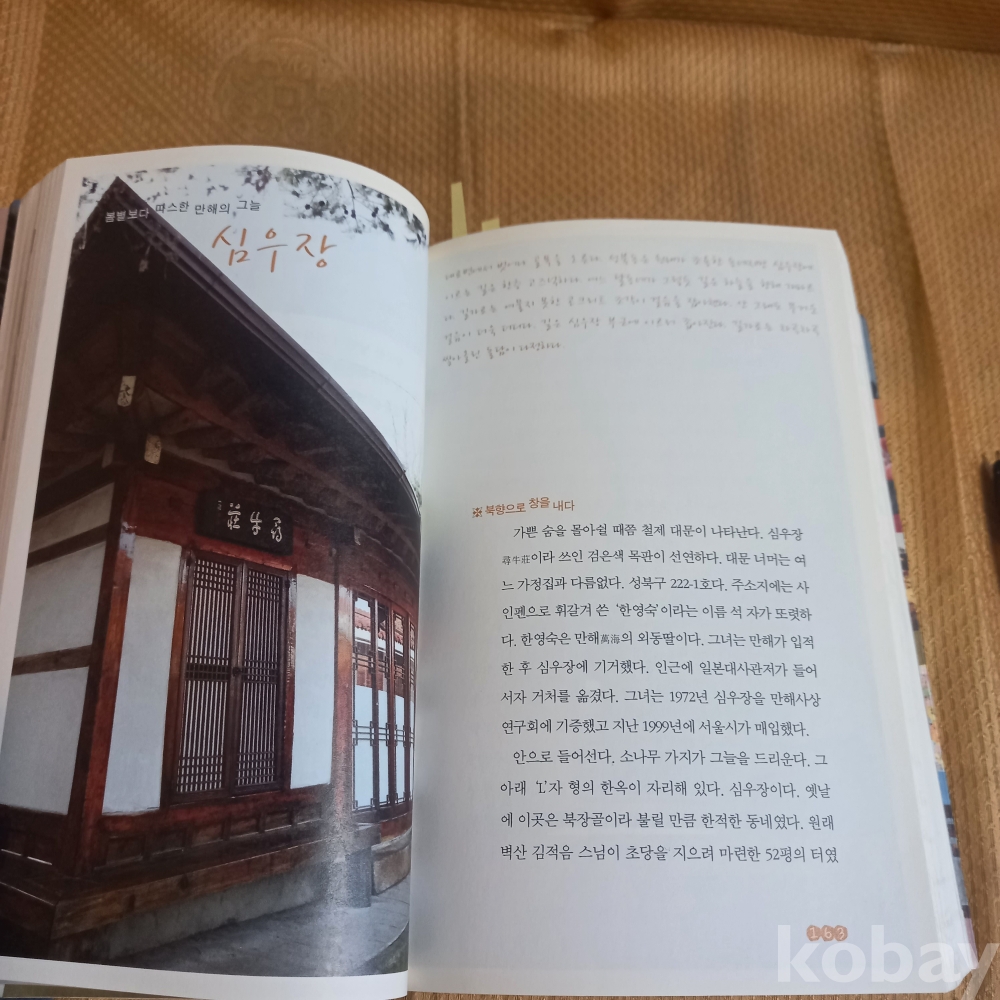 봄볕보다 따스한 만해의 그늘
심우장
尋牛莊
※ 북향으로 창을 내다
가쁜 숨을 몰아쉴 때쯤 철제 대문이 나타난다. 심우장
尋牛莊이라 쓰인 검은색 목판이 선연하다. 대문 너머는 여
느 가정집과 다름없다. 성북구 222-1호다. 주소지에는 사
인펜으로 휘갈겨 쓴 '한영숙'이라는 이름 석 자가 또렷하
다. 한영숙은 만해萬海의 외동딸이다. 그녀는 만해가 입적
한 후 심우장에 기거했다. 인근에 일본대사관저가 들어
서자 거처를 옮겼다. 그녀는 1972년 심우장을 만해사상
연구회에 기증했고 지난 1999년에 서울시가 매입했다.
안으로 들어선다. 소나무 가지가 그늘을 드리운다. 그
아래 'L'자 형의 한옥이 자리해 있다. 심우장이다. 옛날
에 이곳은 북장골이라 불릴 만큼 한적한 동네였다. 원래
벽산 김적음 스님이 초당을 지으려 마련한 52평의 터였
163
kobay